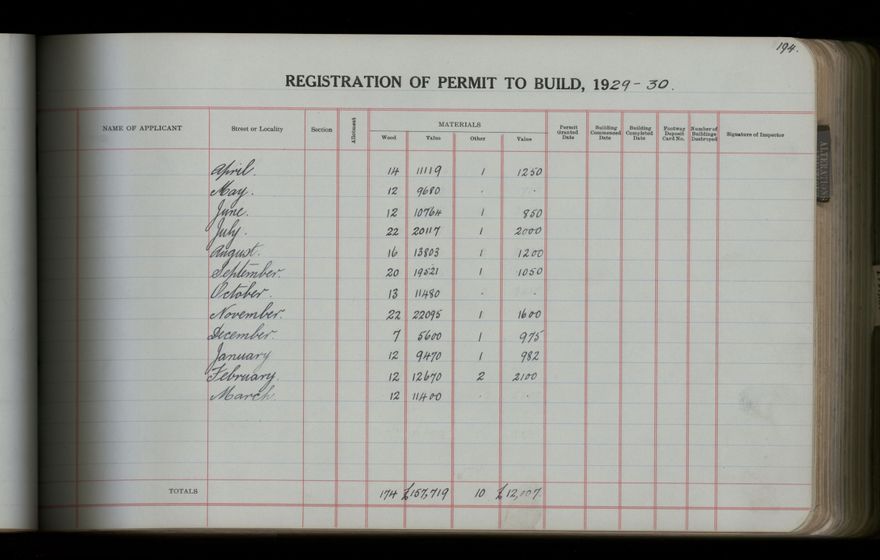 194.
REGISTRATION OF PERMIT TO BUILD, 1929-30.
NAME OF APPLICANT Street or Locality Section Allotment MATERIALS Permit Granted Date Building Commenced Date Building Completed Date Footway Deposit Card No. Number of Buildings Destroyed Signature of Inspector
Wood Value Other Value
April. 14 11119 1 1250
May. 12 9680 . .
June. 12 10764 1 850
July. 22 20117 1 2000
August. 16 13803 1 1200
September. 20 19521 1 1050
October. 13 11480 .
November. 22 22095 1 1600
December. 7 5600 1 975
January 12 9470 1 982
February. 12 12670 2 2100
March. 12 11400 . .
TOTALS 174 £157,719 10 £12,007.
ALTERATIONS